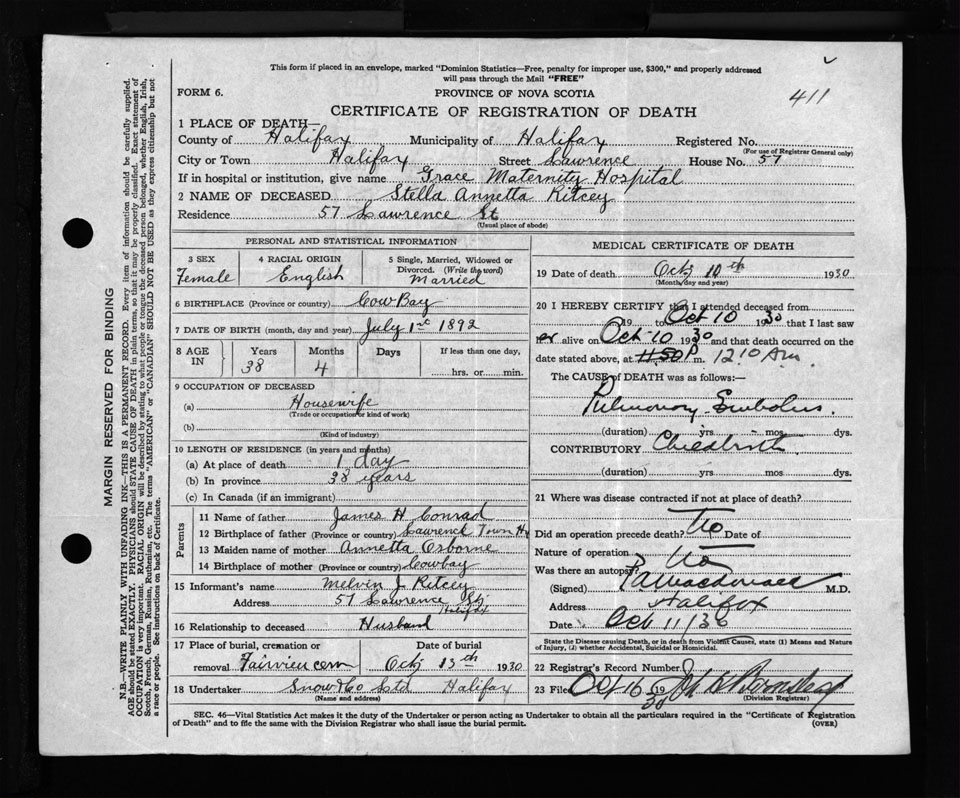 This form if placed in an envelope, marked "Dominion Statistics—Free, penalty for improper use, $300," and properly addressed
will pass through the Mail "FREE"
FORM 6.
PROVINCE OF NOVA SCOTIA
411
CERTIFICATE OF REGISTRATION OF DEATH
1 PLACE OF DEATH—
County of Halifax Municipality of Halifax Registered No.
(For use of Registrar General only)
City or Town Halifax Street Lawrence House No. 57
If in hospital or institution, give name Grace Maternity Hospital
2 NAME OF DECEASED Stella Annetta Ritcey
Residence 57 Lawrence St
(Usual place of abode)
PERSONAL AND STATISTICAL INFORMATION
3 SEX
Female
4 RACIAL ORIGIN
English
5 Single, Married, Widowed or
Divorced. (Write the word)
Married
6 BIRTHPLACE (Province or country) Cow Bay
7 DATE OF BIRTH (month, day and year) July 1st 1892
8 AGE IN
Years Months Days If less than one day,
38 4 hrs. or min.
9 OCCUPATION OF DECEASED
(a) Housewife
(Trade or occupation or kind of work)
(b)
(Kind of industry)
10 LENGTH OF RESIDENCE (in years and months)
(a) At place of death 1 day
(b) In province 38 years
(c) In Canada (if an immigrant)
Parents
11 Name of father James H Conrad
12 Birthplace of father (Province or country) Lawrence Town Hx
13 Maiden name of mother Annetta Osborne
14 Birthplace of mother (Province or country) Cowbay
15 Informant's name Melvin J. Ritcey
Address 57 Lawrence St
Halifax
16 Relationship to deceased Husband
17 Place of burial, cremation or removal Fairview cem
Date of burial Oct 13th 1930
18 Undertaker Snow & Co Ltd Halifax
(Name and address)
MEDICAL CERTIFICATE OF DEATH
19 Date of death Oct 10th 1930
(Month, day and year)
20 I HEREBY CERTIFY that I attended deceased from
19 to Oct 10 1930 that I last saw
her alive on Oct 10 1930 and that death occurred on the
date stated above, at 11.50 P m. 12.10 Am.
The CAUSE of DEATH was as follows:—
Pulmonary Embolus.
(duration) yrs mos. dys.
CONTRIBUTORY Childbirth
(duration) yrs. mos. dys.
21 Where was disease contracted if not at place of death?
Did an operation precede death? No Date of
Nature of operation
Was there an autopsy? No
(Signed) M.D.
Address Halifax
Date Oct 11/30
State the Disease causing Death, or in death from Violent Causes, state (1) Means and Nature
of Injury, (2) whether Accidental, Suicidal or Homicidal.
22 Registrar's Record Number
23 Filed Oct 16 1930
(Division Registrar)
SEC. 46—Vital Statistics Act makes it the duty of the Undertaker or person acting as Undertaker to obtain all the particulars required in the "Certificate of Registration
of Death" and to file the same with the Division Registrar who shall issue the burial permit. (OVER)
MARGIN RESERVED FOR BINDING
N.B.—WRITE PLAINLY WITH UNFADING INK—THIS IS A PERMANENT RECORD. Every item of information should be carefully supplied.
AGE should be stated EXACTLY. PHYSICIANS should STATE CAUSE OF DEATH in plain terms, so that it may be properly classified. Exact statement of
OCCUPATION is very important. RACIAL ORIGIN will be described by stating to what people or tongue the deceased person belonged, whether English, Irish,
Scotch, French, German, Russian, Ruthenian, etc. The terms "AMERICAN" or "CANADIAN" SHOULD NOT BE USED as they express citizenship but not
a race or people. See instructions on back of Certificate.